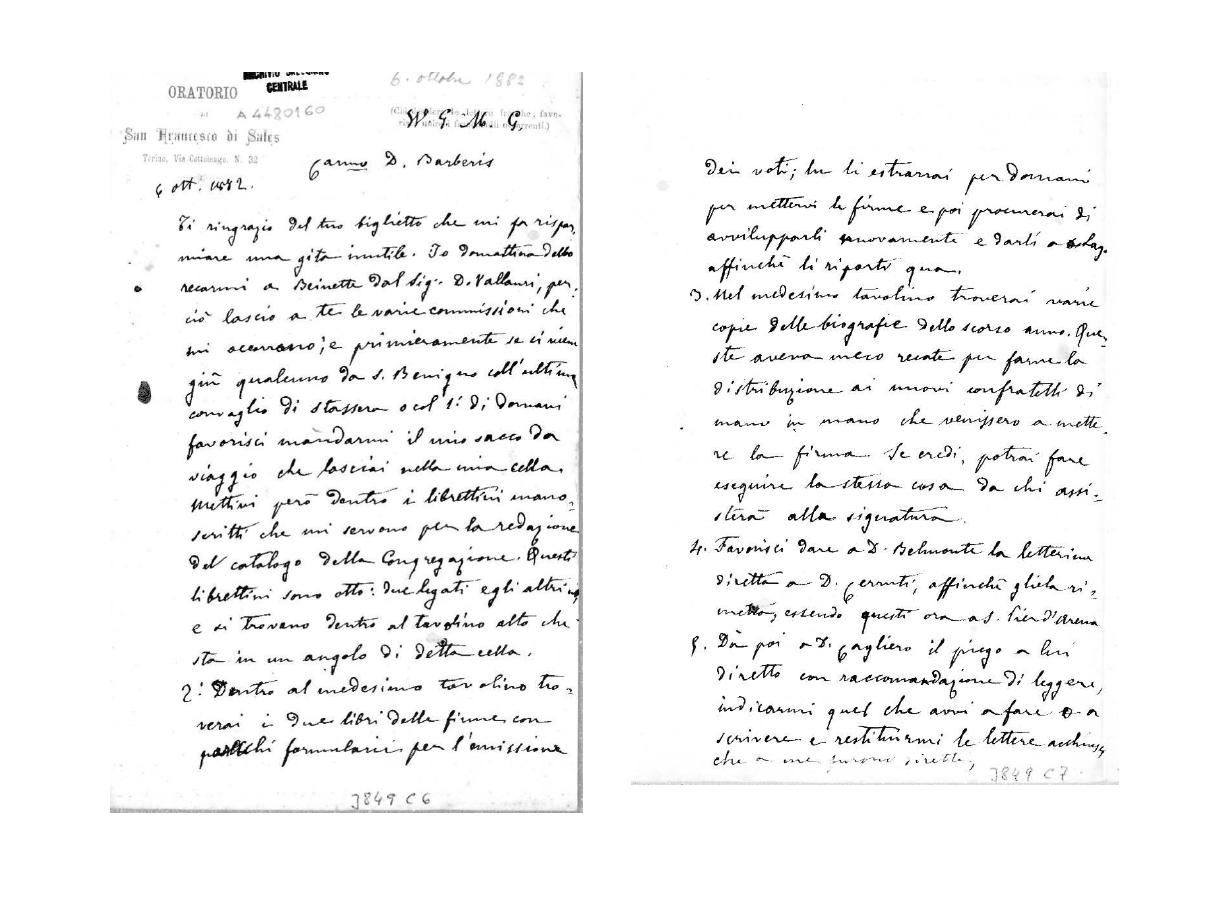 ARCHIVIO SALESIANO
CENTRALE
6. ottobre 1882
ORATORIO
di
A4480160
San Francesco di Sales
Torino, Via Cottolengo, N. 32
W G M G.
Carmo D. Barberis
6 ott. 1882.
Ti ringrazio del tuo biglietto che mi fa rispar,
miare una gita inutile. Io domattina debbo
recarmi a Beinette dal Sig. D. Vallauri, per,
ciò lascio a te le varie commissioni che
mi occorrono; e primieramente se ci viene
giù qualcuno da S. Benigno coll'ultimo
convaglio di stassera o col 1º di domani
favorisci mandarmi il mio sacco da
viaggio che lasciai nella mia cella.
Mettivi però dentro i librettini mano=
scritti che mi servono per la redazione
del catalogo della Congregazione. Questi
librettini sono otto: due legati e gli altri no,
e si trovano dentro al tavolino alto che
sta in un angolo di detta cella.
2º Dentro al medesimo tavolino tro=
verai i due libri delle firme con
parecchi formularii per l'emissione
J849 C6
dei voti; tu li estrarrai per domani
per mettervi le firme e poi procurerai di
avvilupparli nuovamente e darli a
affinchè li riporti qua.
3. Nel medesimo tavolino troverai varie
copie delle biografie dello scorso anno. Que,
ste aveva meco recate per farne la
distribuzione ai nuovi confratelli di
mano in mano che venissero a mette,
re la firma. Se credi, potrai fare
eseguire la stessa cosa da chi assi=
sterà alla signatura.
4. Favorisci dare a D. Belmonte la letterina
diretta a D. Cerruti, affinchè gliela ri=
metta, essendo questi ora a S. Pier d'Arena
5. Dà poi a D. Cagliero il piego a lui
diretto con raccomandazione di leggere,
indicarmi quel che avvi a fare o a
scrivere e restituirmi le lettere acchiuse,
che a me furono dirette,
J849 C7